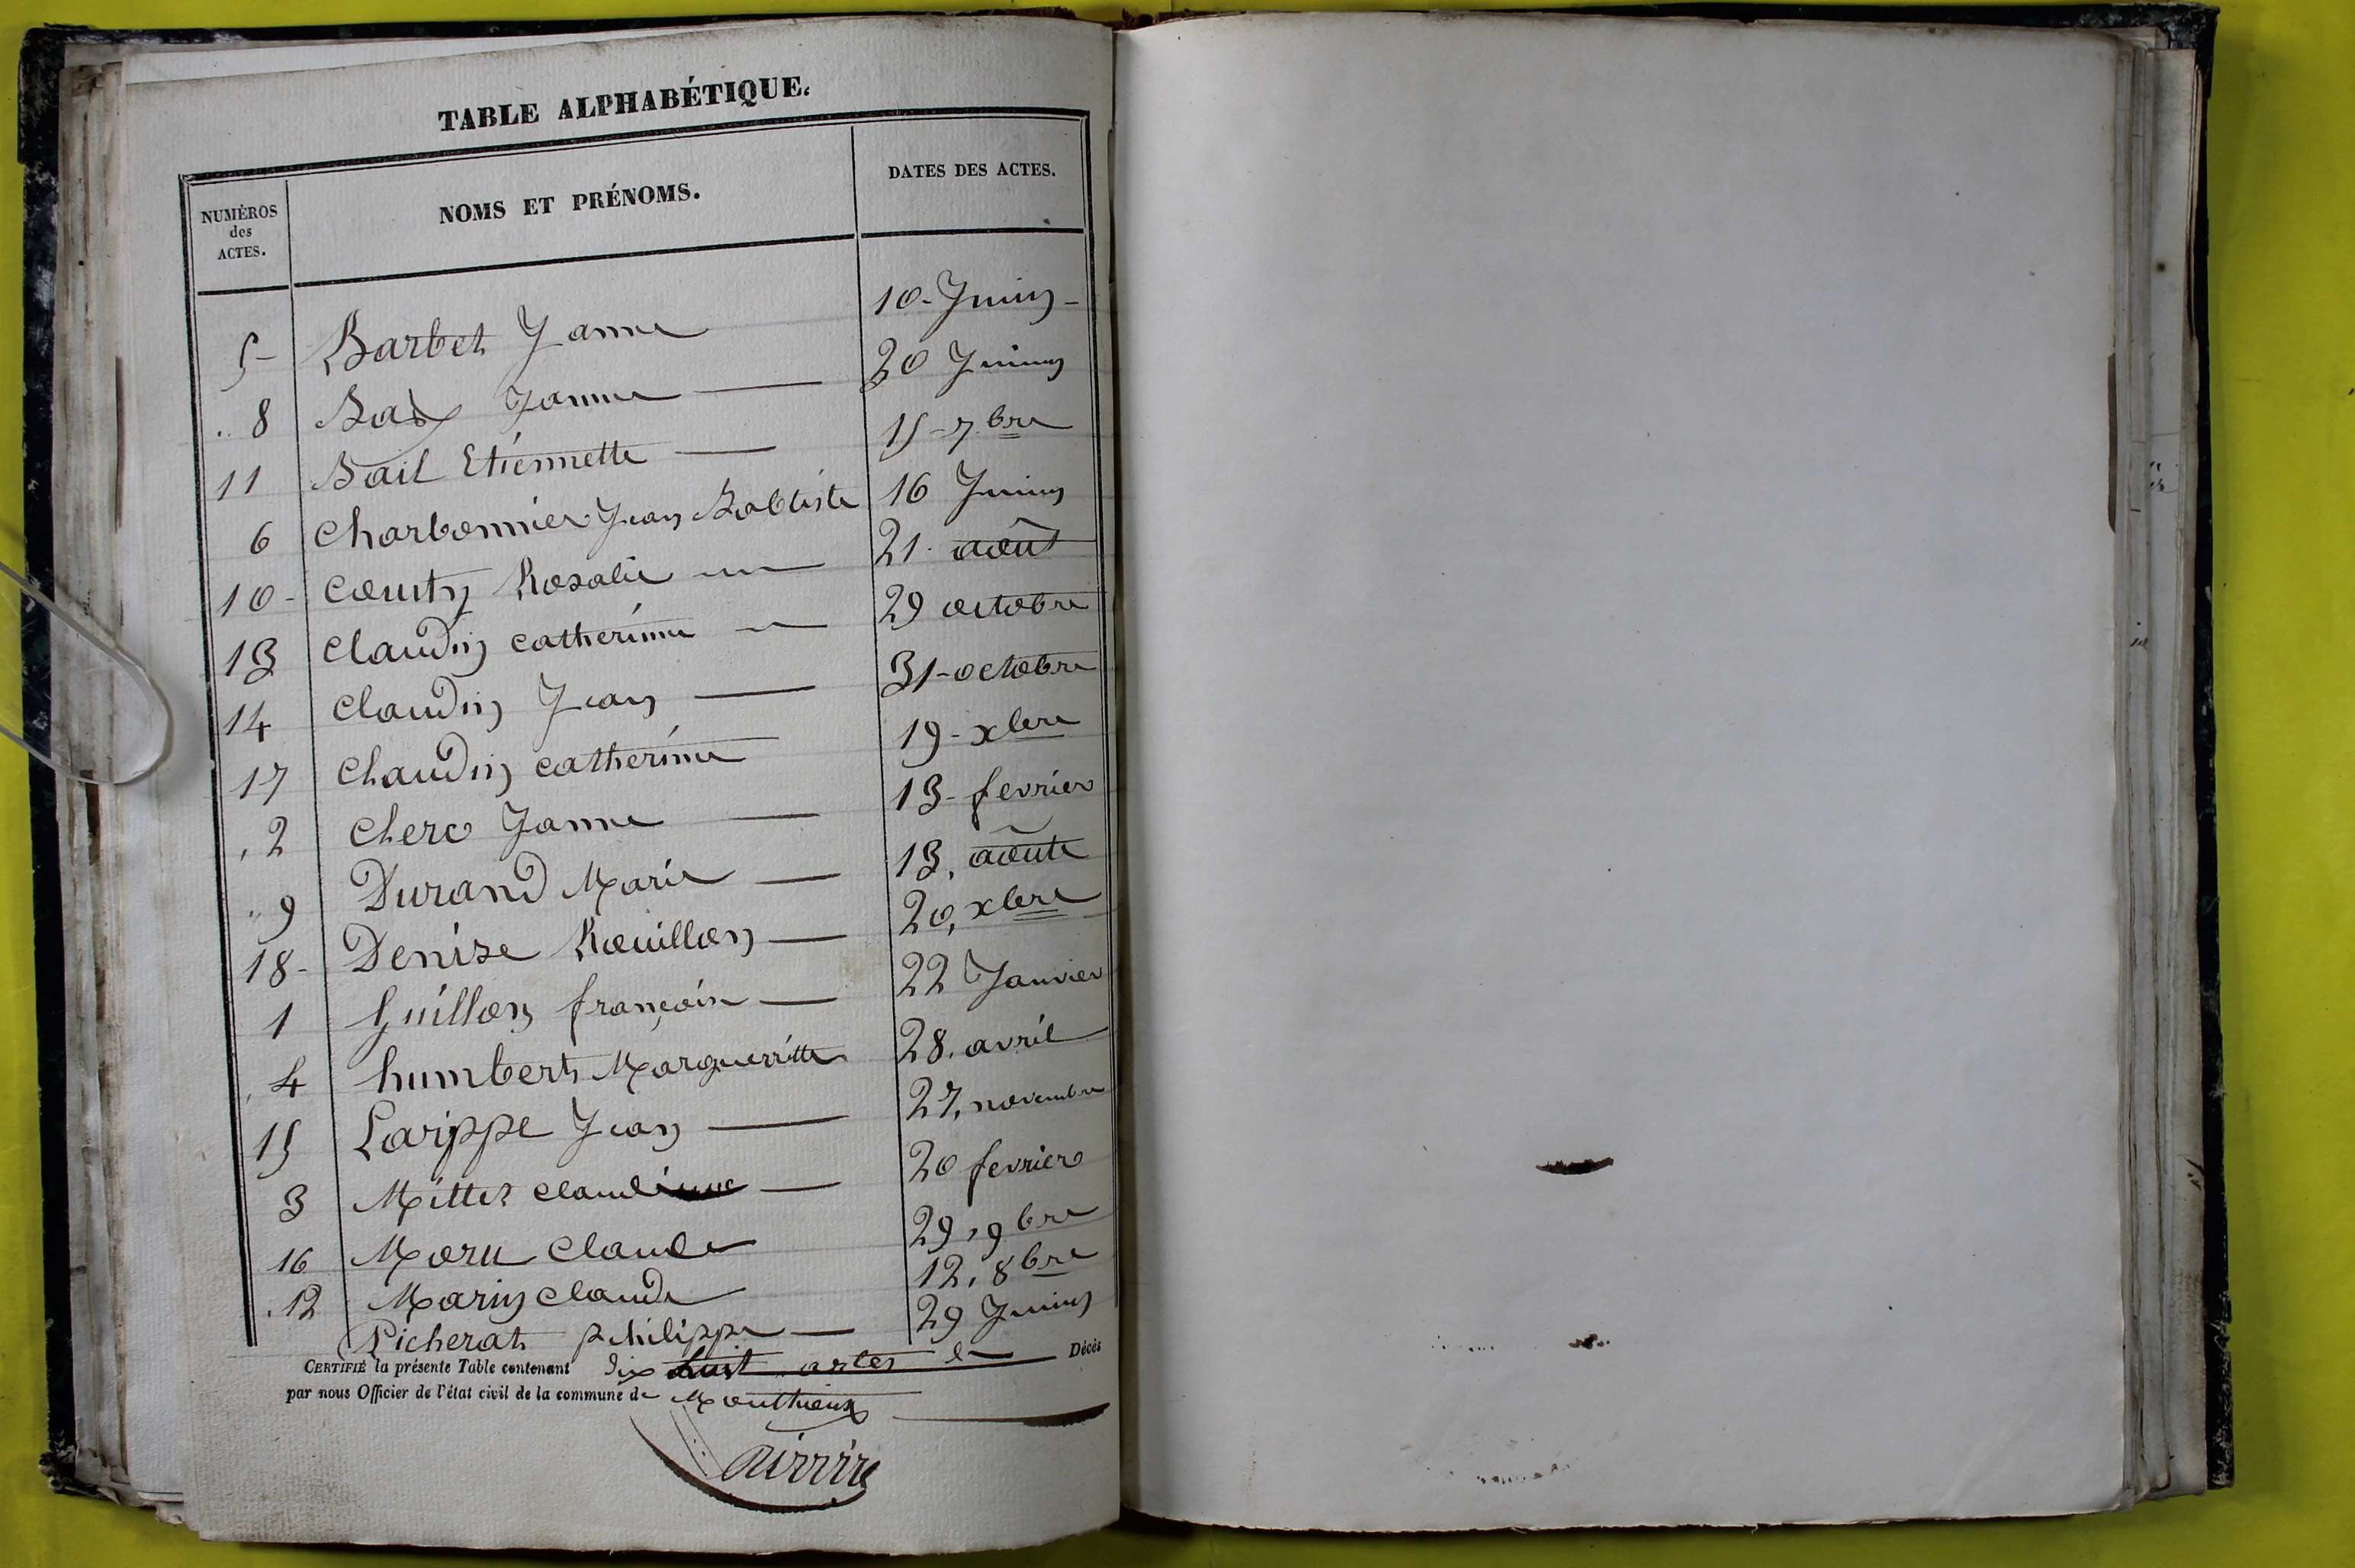 TABLE ALPHABÉTIQUE.
NUMÉROS des ACTES. NOMS ET PRÉNOMS. DATES DES ACTES.
5- Barbet Janne 10- Juin -
8 Janne 20 Juin
11 Bail Etiennette 15-7bre
6 Charbonnier Jean Babtiste 16 Juin
10- Couty Rosalie 21. août
13 Claudin catherinne 29 octobre
14 Claudin Jean 31-octobre
17 Chaudin catherine 19-xbre
2 Clerc Janne 13- fevrier
9 Durand Marie 13, aoûte
18- Denise Rouillon 20, xbre
1 Guillon françois 22 Janvier
4 humbert Marguerritte 28. avril
15 Larippe Jean 27, novembre
3 Mittet claudinne 20 fevrier
16 Moru Claude 29, 9bre
12 Marin claude 12, 8bre
Picherat philippe 29 Juin
CERTIFIÉ la présente Table contenant dix huit actes de Décès
par nous Officier de l'état civil de la commune de Monthieux